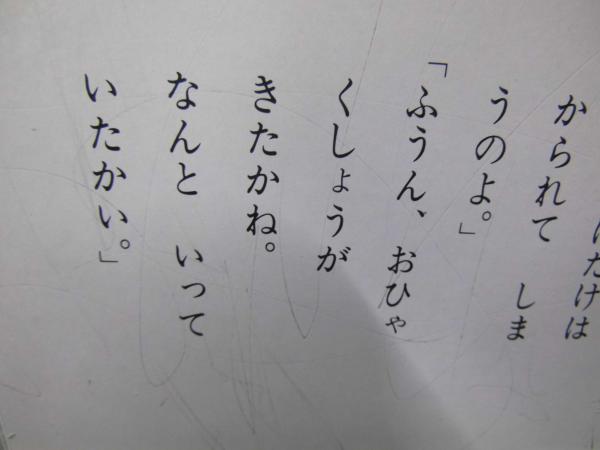 だけは
かられて しま
うのよ。」
「ふうん、 おひゃ
くしょうが
きたかね。
なんと いって
いたかい。」